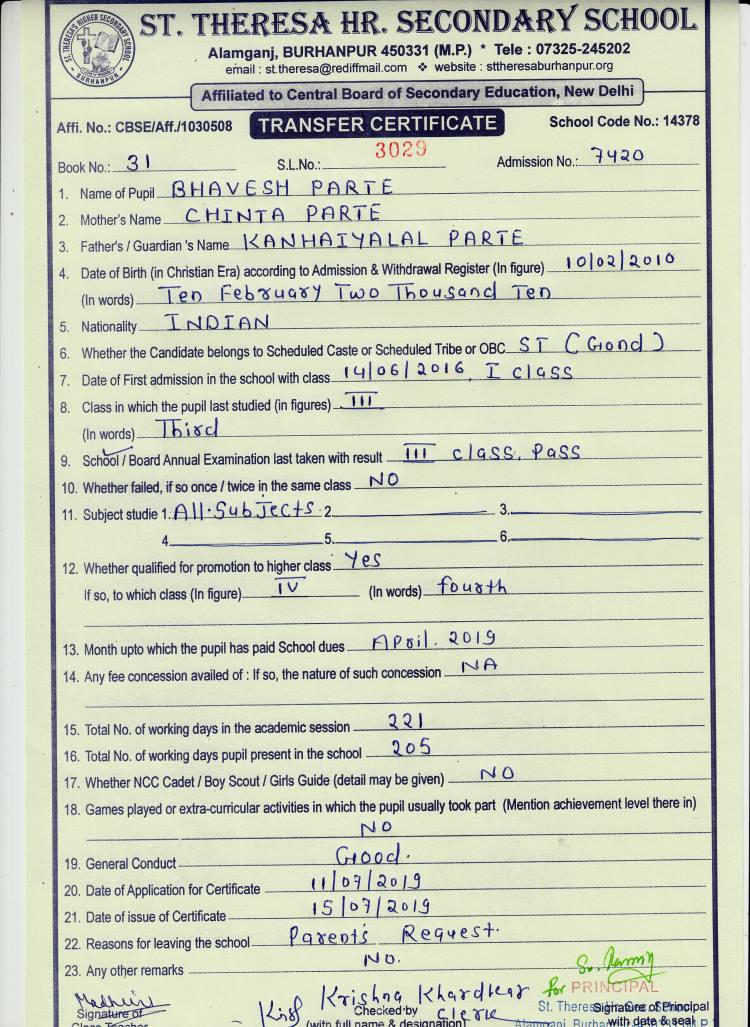 ST. THERESA HR. SECONDARY SCHOOL
Alamganj, BURHANPUR 450331 (M.P.) * Tele : 07325-245202
email : st.theresa@rediffmail.com ❖ website : sttheresaburhanpur.org
Affiliated to Central Board of Secondary Education, New Delhi
Affi. No.: CBSE/Aff./1030508 TRANSFER CERTIFICATE School Code No.: 14378
Book No.: 31 S.L.No.: 3029 Admission No.: 7420
1. Name of Pupil BHAVESH PARTE
2. Mother's Name CHINTA PARTE
3. Father's / Guardian 's Name KANHAIYALAL PARTE
4. Date of Birth (in Christian Era) according to Admission & Withdrawal Register (In figure) 10/02/2010
(In words) Ten February Two Thousand Ten
5. Nationality INDIAN
6. Whether the Candidate belongs to Scheduled Caste or Scheduled Tribe or OBC ST (Gond)
7. Date of First admission in the school with class 14/06/2016, I class
8. Class in which the pupil last studied (in figures) III
(In words) Third
9. School / Board Annual Examination last taken with result III class, Pass
10. Whether failed, if so once / twice in the same class NO
11. Subject studie 1. All Subjects 2. 3.
4. 5. 6.
12. Whether qualified for promotion to higher class Yes
If so, to which class (In figure) IV (In words) fourth
13. Month upto which the pupil has paid School dues April. 2019
14. Any fee concession availed of : If so, the nature of such concession NA
15. Total No. of working days in the academic session 221
16. Total No. of working days pupil present in the school 205
17. Whether NCC Cadet / Boy Scout / Girls Guide (detail may be given) NO
18. Games played or extra-curricular activities in which the pupil usually took part (Mention achievement level there in)
NO
19. General Conduct Good.
20. Date of Application for Certificate 11/07/2019
21. Date of issue of Certificate 15/07/2019
22. Reasons for leaving the school Parent's Request.
23. Any other remarks No.
for PRINCIPAL
Madhuri Krishna Khardkar
Signature of Checked by Clerk St. Theres Signature of Principal
Class Teacher (with full name & designation) Alamganj, Burha with date & seal